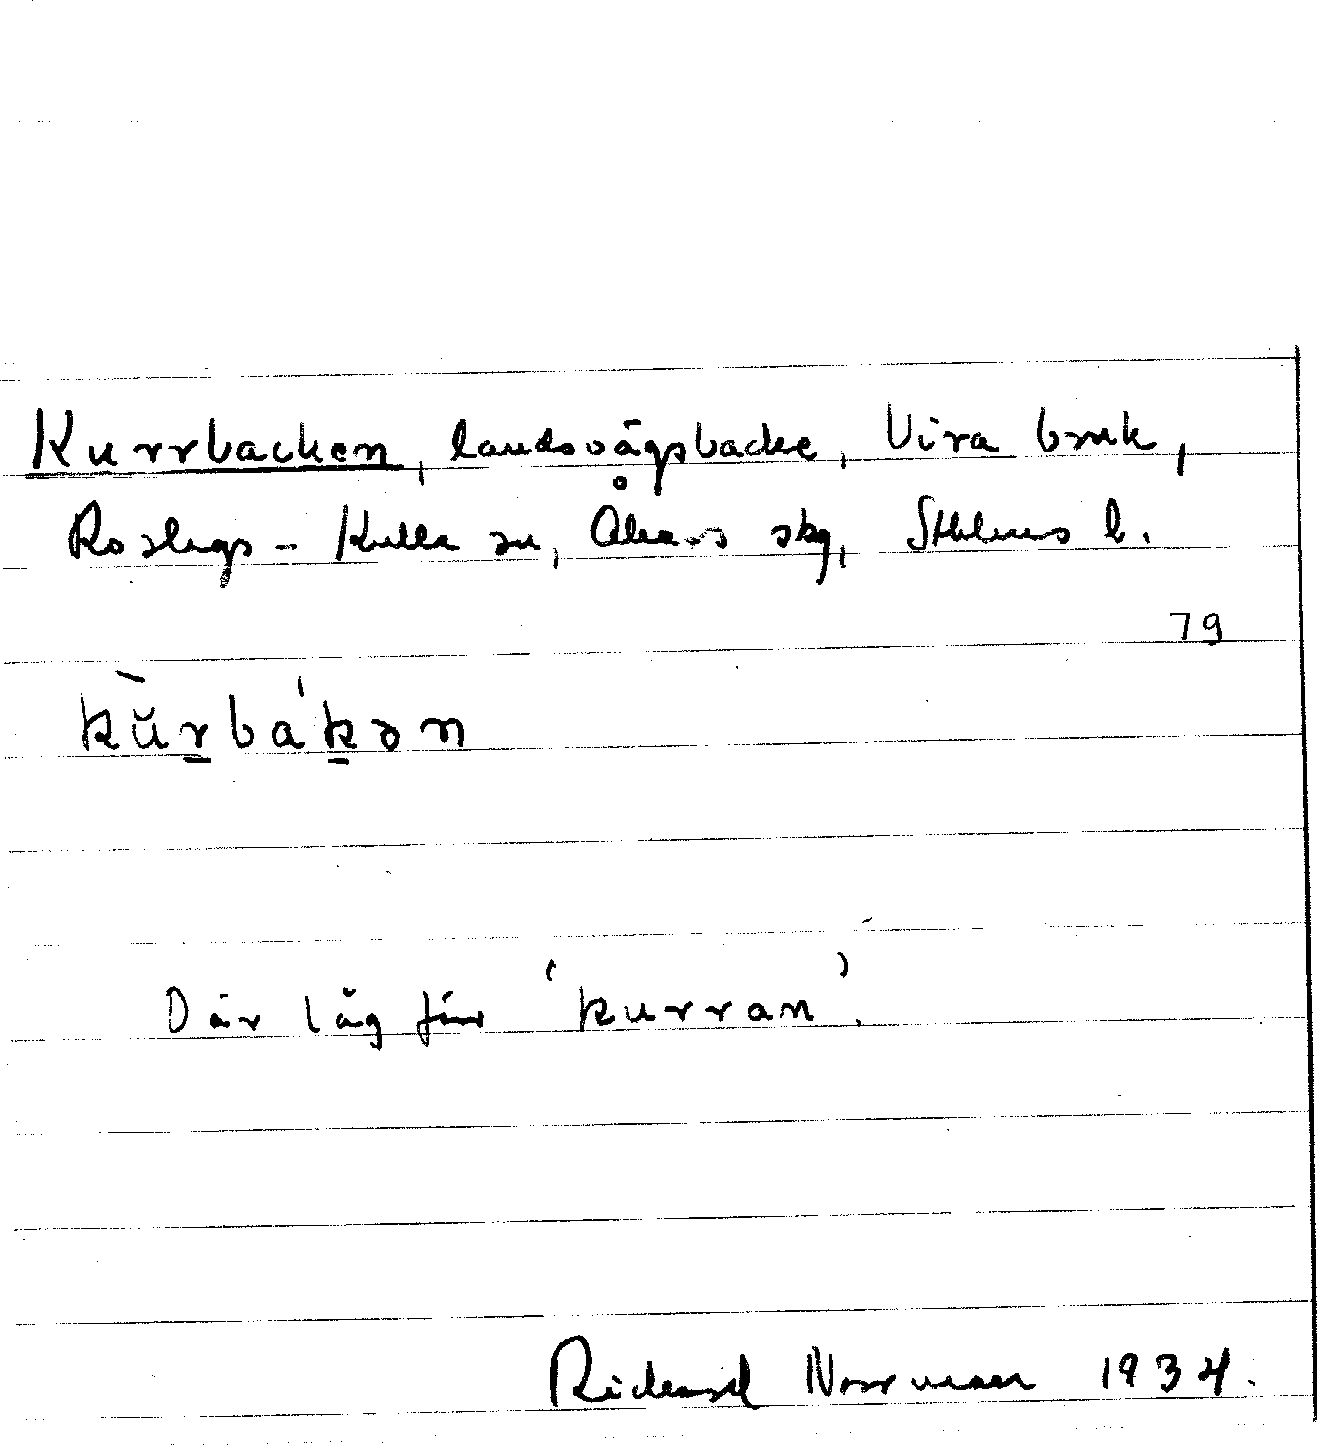 Kurrbacken, landsvägsbacke, Vira bruk,
Roslags-Kulla sn, Åkers skg, Sthlms l.
79
kùrba'kən
Där låg förr 'kurran'.
Rickard Norrman 1934.